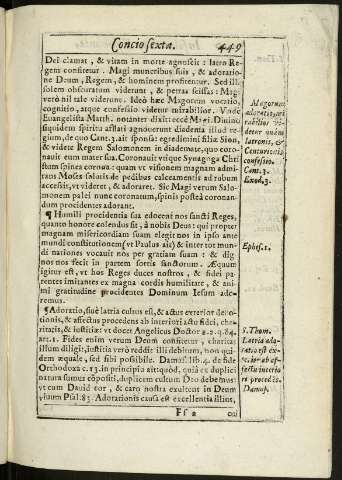 Concio sexta. 449
Dei clamat, & vitam in morte agnoscit: latro Regem confitetur. Magi muneribus suis, & adoratione Deum, Regem, & hominem profitentur. Sed illi
solem obscuratum viderunt, & petras scissas: Magi
verò nil tale viderunt. Ideò hæc Magorum vocatio,
cognitio, atque confessio videtur mirabilior. Vnde
Euangelista Matth. notanter dixit: ecce Magi. Diuino
siquidem spiritu afflati agnouerunt diademata illud regium, de quo Cant. 3. ait sponsa: egredimini filiæ Sion,
& videte Regem Salomonem in diademate, quo coronauit eum mater sua. Coronauit vtique Synagoga Christum spinea corona: quam vt visionem magnam admirans Moses solutis de pedibus calceamentis ad rubum
accessit, vt videret, & adoraret. Sic Magi verum Salomonem palei nunc coronatum, spinis posteà coronandum procidentes adorant.
¶ Humili procidentia sua edocent nos sancti Reges,
quanto honore colendus sit, à nobis Deus: qui propter
magnam misericordiam suam elegit nos in ipso ante
mundi constitutionem (vt Paulus ait) & inter tot mundi nationes vocauit nos per gratiam suam: & dignos nos fecit in partem sortis sanctorum. Æquum
igitur est, vt hos Reges duces nostros, & fidei parentes imitantes ex magna cordis humilitate, & animi gratitudine procidentes Dominum Iesum adoremus.
¶ Adoratio, siuè latria cultus est, & actus exterior deuotionis, & affectus procedens ab interiori actu fidei, charitatis, & iustitiæ: vt docet Angelicus Doctor 2.2. q.84.
art.1. Fides enim verum Deum confitetur, charitas
illum diligit, iustitia verò reddit illi debitum, non quidem æquale, sed sibi possibile. Damas. lib. 4. de fide
Orthodoxa c. 13. in principio ait: quòd, quià ex duplici
natura sumus cõpositi, duplicem cultum Deo debemus:
vt cum Dauid cor, & caro nostra exultent in Deum
viuum Psal. 83. Adorationis causa est excellentia illius,
Ff 2 cui
Magorum
adoratio, mirabilior videtur quàm
latronis, &
Centurionis
confessio.
Cant. 3.
Exod. 3.
Ephes. 1.
S. Thom.
Latria adoratio est exterior ab affectu interiori procedẽs.
Damas.